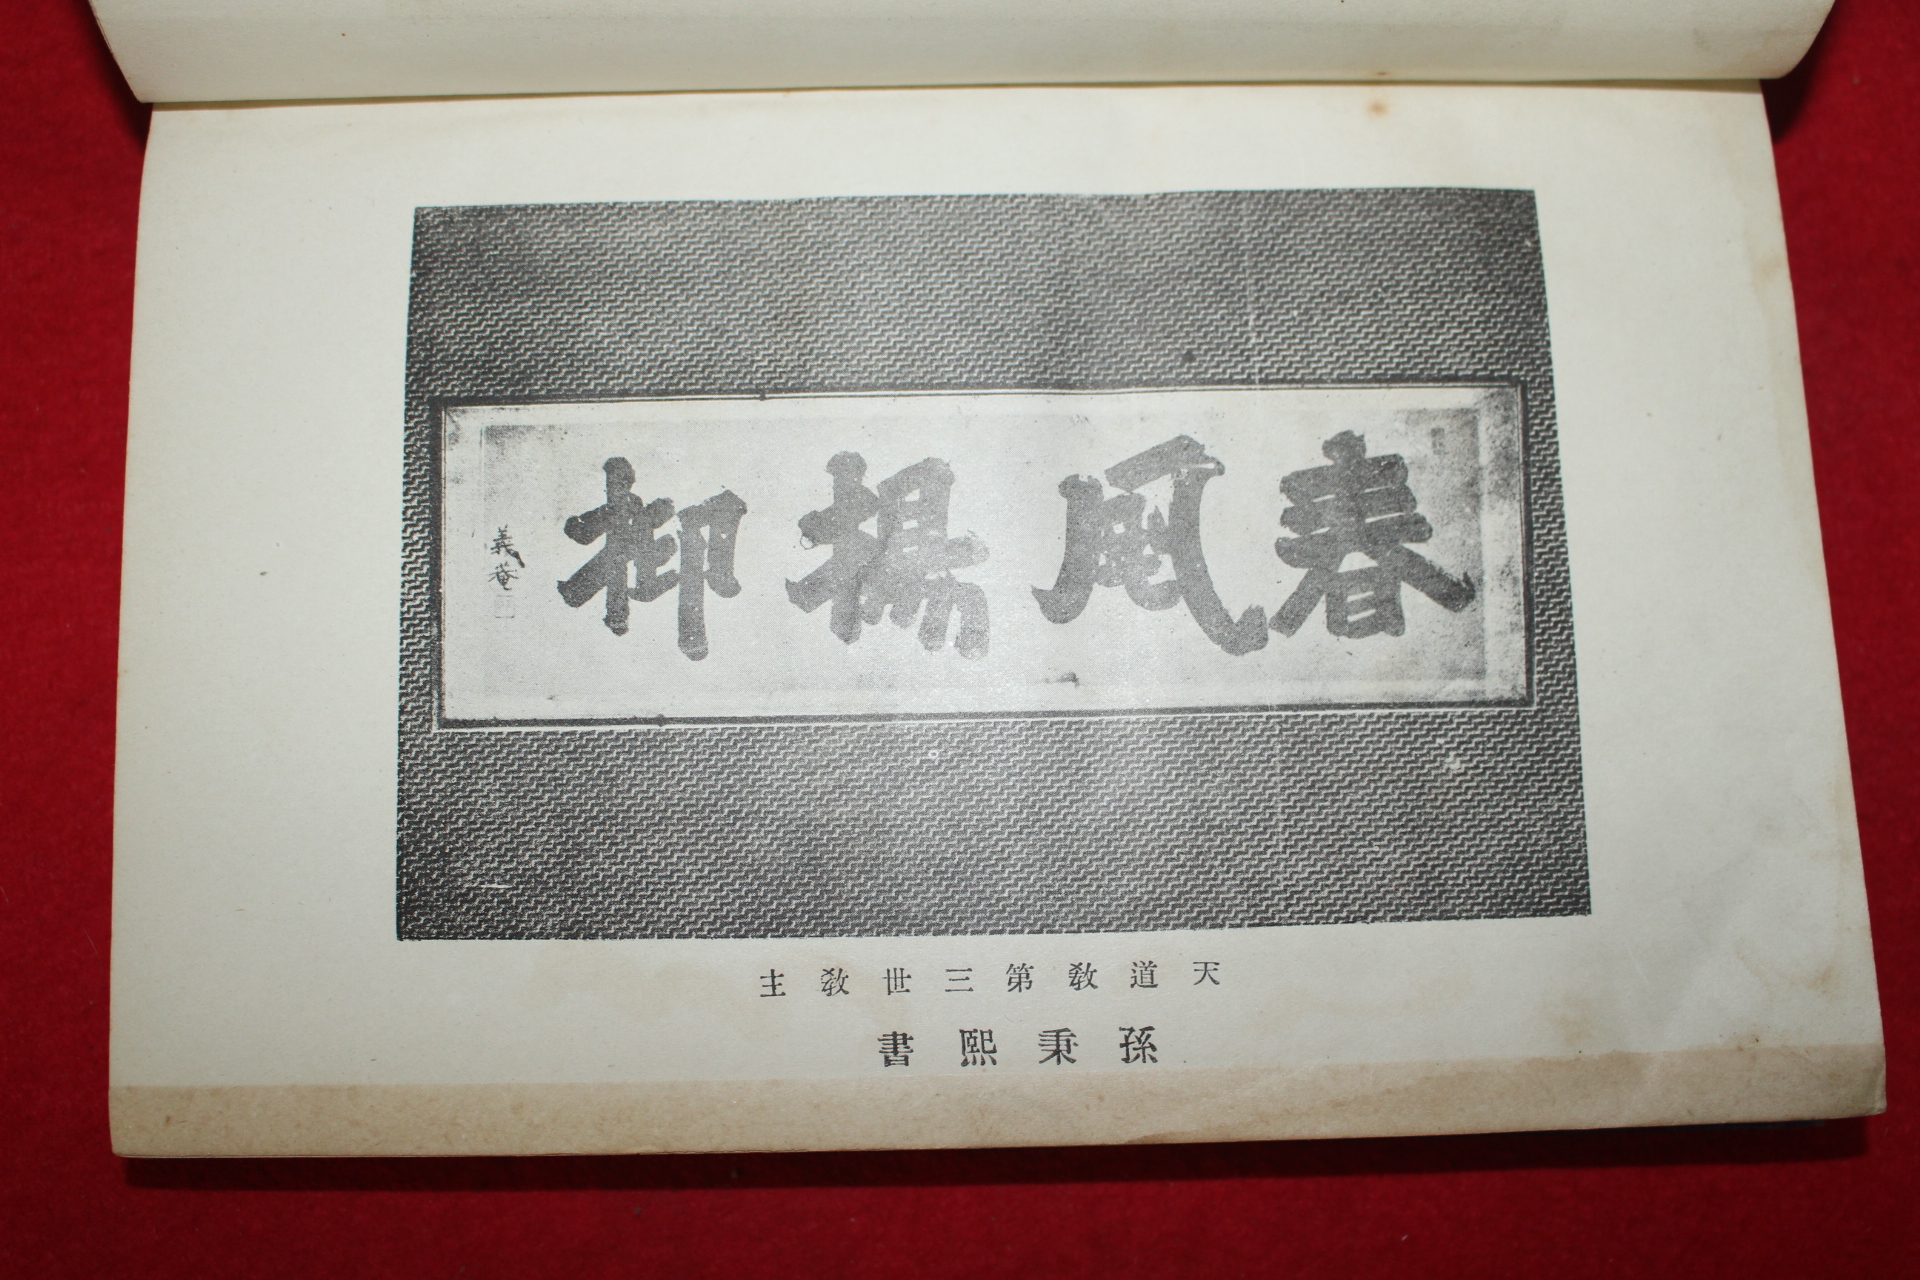 春風楊柳
義菴
天道敎第三世敎主
孫秉熙書